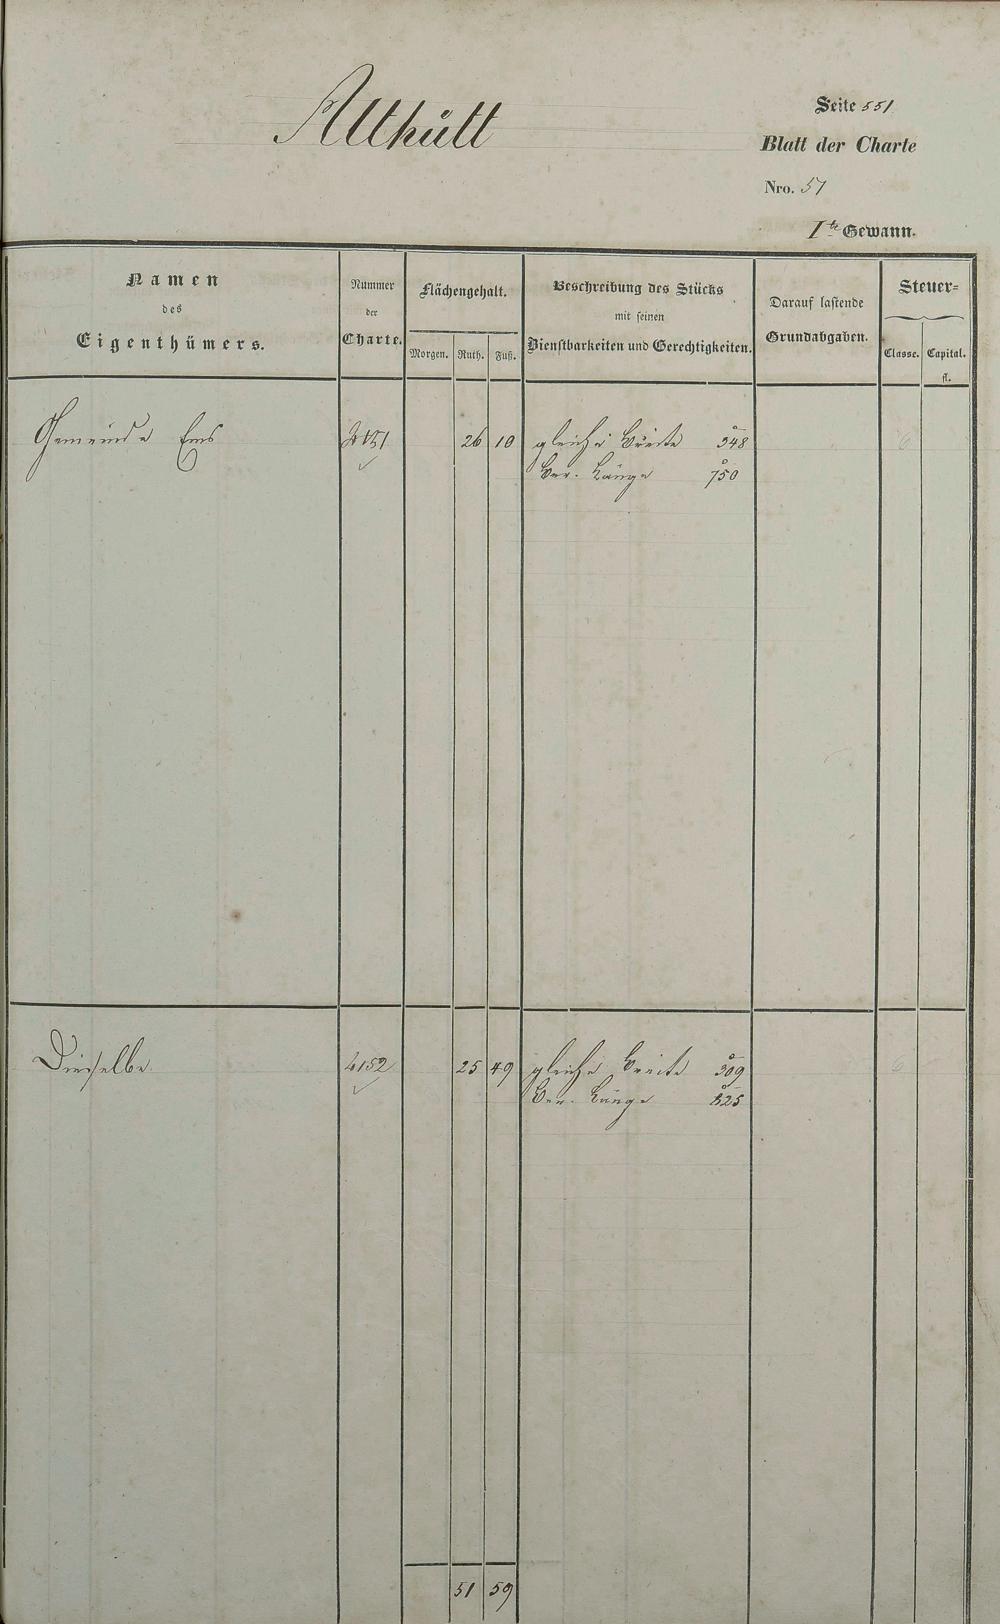 Althütt
Seite 551
Blatt der Charte
Nro. 51
I.te Gewann.
Namen
des
Eigenthümers.
Nummer
der
Charte.
Flächengehalt.
Morgen. Ruth. Fuß.
Beschreibung des Stücks
mit seinen
Dienstbarkeiten und Gerechtigkeiten.
Darauf lastende
Grundabgaben.
Steuer-
Classe. Capital.
fl.
Gemeinde Ems 26 10 gleiche Breite 348 6
Ber. Länge 750
Dieselbe 4152 25 49 gleiche Breite 309 6
Ber. Länge 825
51 59